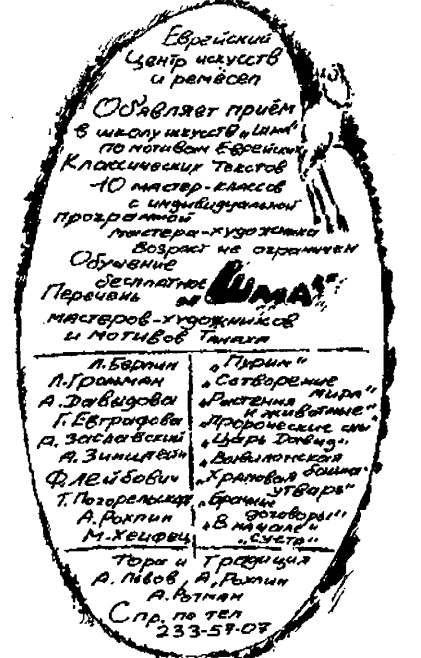 Еврейский
Центр искусств
и ремёсел
Объявляет приём
в школу искусств „Шма"
по мотивам Еврейских
Классических Текстов
10 мастер-классов
с индивидуальной
программой
мастера-художника
Возраст не ограничен
Обучение
бесплатное
Перечень „Шма"
мастеров-художников
и мотивов Танаха
Л. Берлин „Пурим"
Л. Гройсман „Сотворение мира"
А. Давыдова „Растения и животные"
Г. Евграфова „Пророческие сны"
А. Заславский „Царь Давид"
А. Зинштейн „Вавилонская башня"
Ф. Лейбович „Храмовая утварь"
Т. Погорельская „Брачные договоры"
А. Рохлин „В начале"
М. Хейфец „Суета"
Тора и Традиция
А. Львов, А. Рохлин
А. Ротман
Спр. по тел
233-57-07